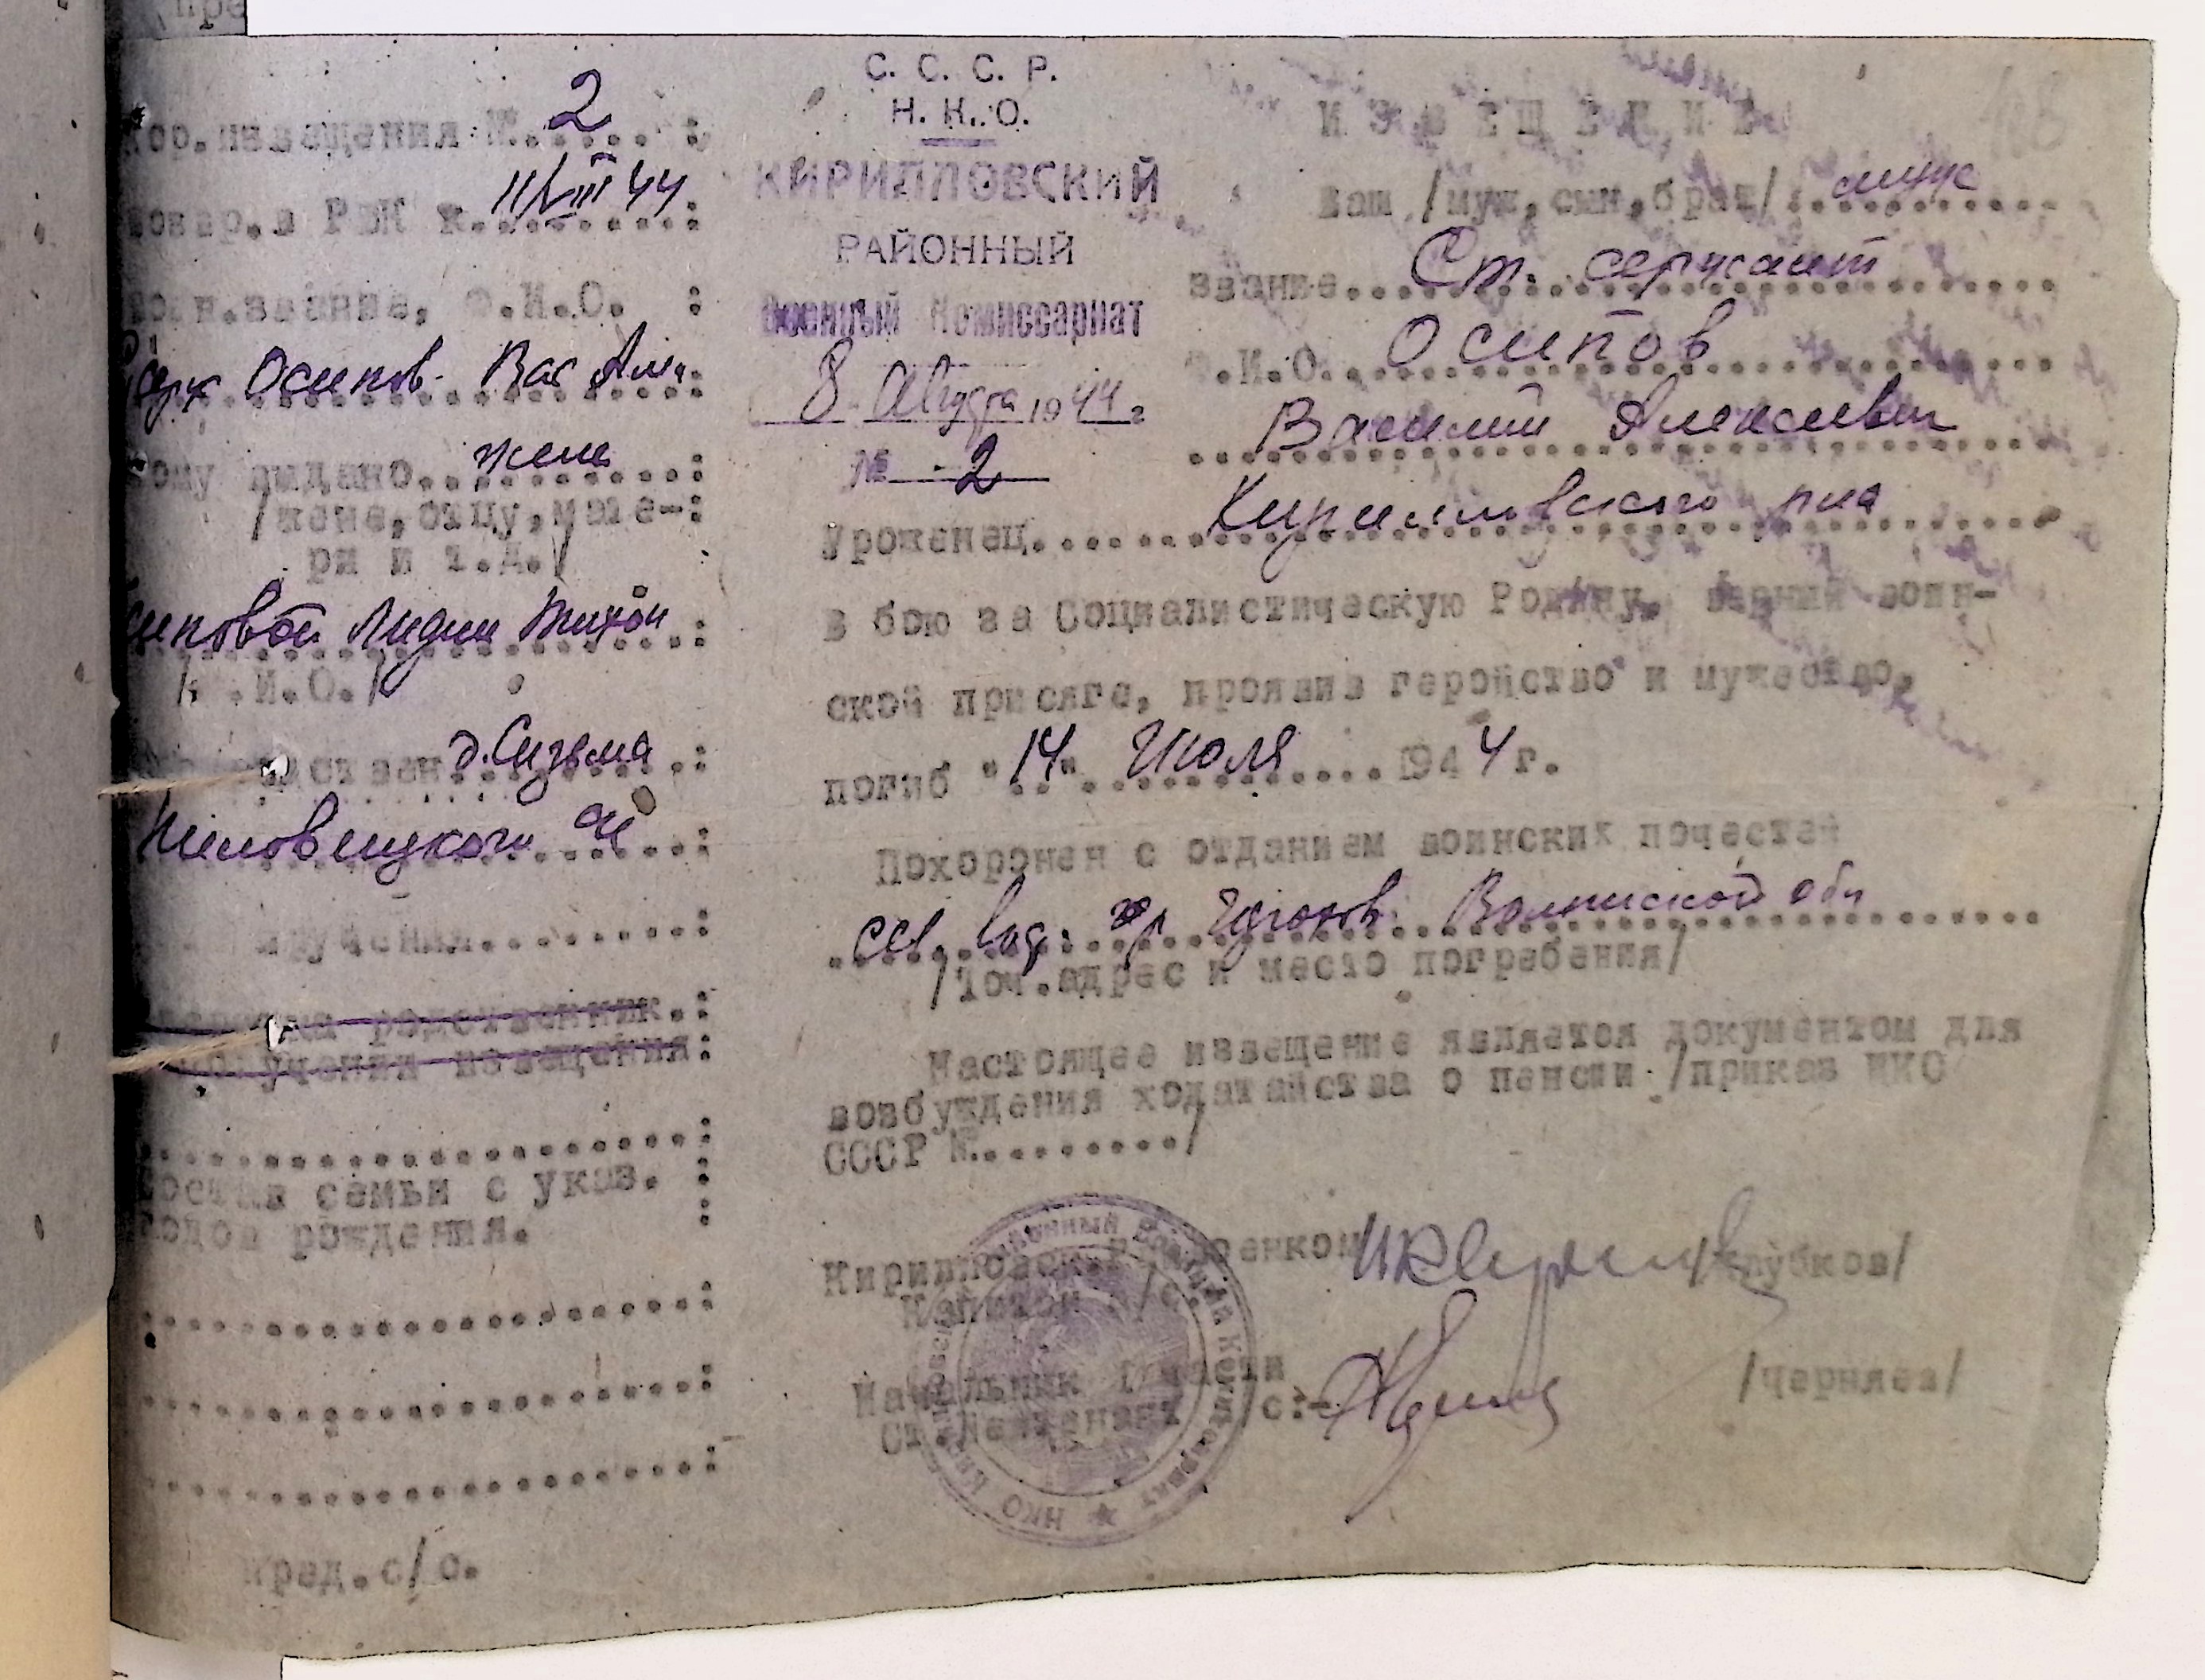 Кор.извещения №. 2
повар.в РВК к. 11/VIII 44
воин.звание, Ф.И.О.
Серж Осипов Вас Ал.
Кому выдано. жене
/жене, отцу, мате-
ри и т.д./
Осиповой Лидии Тихон
/Ф.И.О./
д. Сизьма
вручения
родственник.
получении извещения
Состав семьи с указ.
годов рождения.
Пред.с/с.
С. С. С. Р.
Н. К. О.
КИРИЛЛОВСКИЙ
РАЙОННЫЙ
Военный Комиссариат
8 Августа 1944 г
№ 2
ИЗВЕЩЕНИЕ
ваш /муж,сын,брат/ муж
звание Ст. сержант
Ф.И.О. Осипов
Василий Алексеевич
уроженец Кирилловского р-на
в бою за Социалистическую Родину, верный воин-
ской присяге, проявив геройство и мужество,
погиб "14" Июля 1944 г.
Похоронен с отданием воинских почестей
Волынской обл
/Точ.адрес и место погребения/
Настоящее извещение является документом для
возбуждения ходатайства о пенсии /приказ НКО
СССР №........./
Кирилловский райвоенком
Капитан а/с. /
Начальник 1 части
Ст.лейтенант а/с:- /Черняев/
НКО Кирилловский Районный Военный Комиссариат